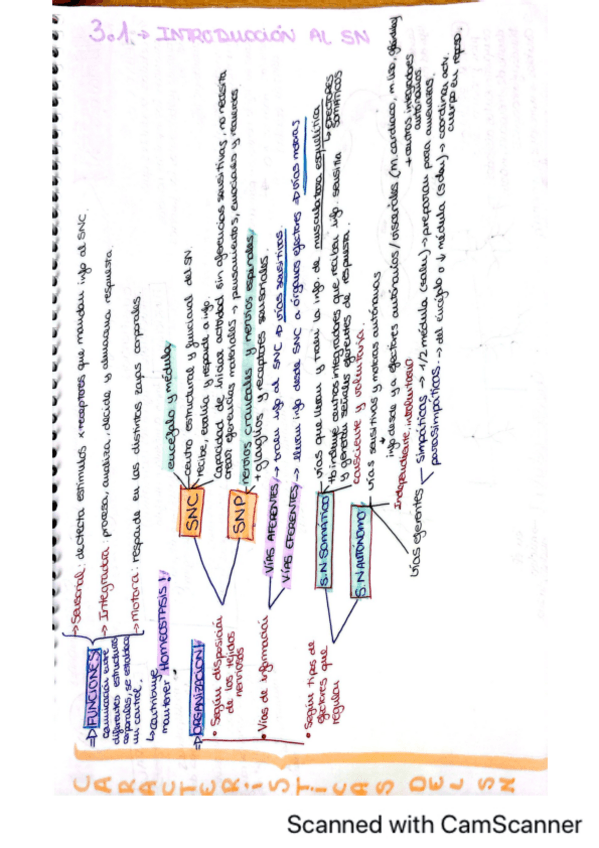 3.1.→ INTRODUCCIÓN AL SN
CARACTERÍSTICAS DEL SN
⇒ FUNCIONES
comunicación entre
diferentes estructuras
corporales, se establece
un control.
↳ contribuye
mantener HOMEOSTASIS!
→ Sensorial: detecta estímulos x receptores que mandan info al SNC.
→ Integradora: procesa, analiza, decide y almacena respuesta.
→ Motora: responde en las distintas zonas corporales
⇒ ORGANIZACIÓN
• Según disposición
de los tejidos
nerviosos
SNC
encéfalo y médula
centro estructural y funcional del SN.
recibe, evalúa y responde a info.
Capacidad de iniciar actividad sin aferencias sensitivas, no necesita
crear eferencias materiales → pensamientos, emociales y
SNP
nervios craneales y nervios espinales
+ ganglios y receptores sensoriales.
• Vías de información
VÍAS AFERENTES → traen info al SNC → vías sensitivas.
VÍAS EFERENTES → llevan info desde SNC a órganos efectores ⇒ vías motoras
• Según tipos de
efectores que
regulan
S.N SOMÁTICO
vías que llevan y traen la info. de musculatura esquelética
↳ EFECTORES SOMÁTICOS
tb incluye centros integradores que reciben info. sensitiva
y generan señales eferentes de respuesta.
consciente y voluntaria.
S.N AUTÓNOMO
vías sensitivas y motoras autónomas
info desde y a efectores autónomos/viscerales (m. cardiaco, m liso, glándulas)
+ centros integradores
autónomos
Independiente, involuntario
vías eferentes
simpáticas → 1/2 médula (salen) → preparan para amenazas.
parasimpáticas → del encéfalo o ↓ médula (salen) → coordina act.
cuerpo en reposo.
Scanned with CamScanner